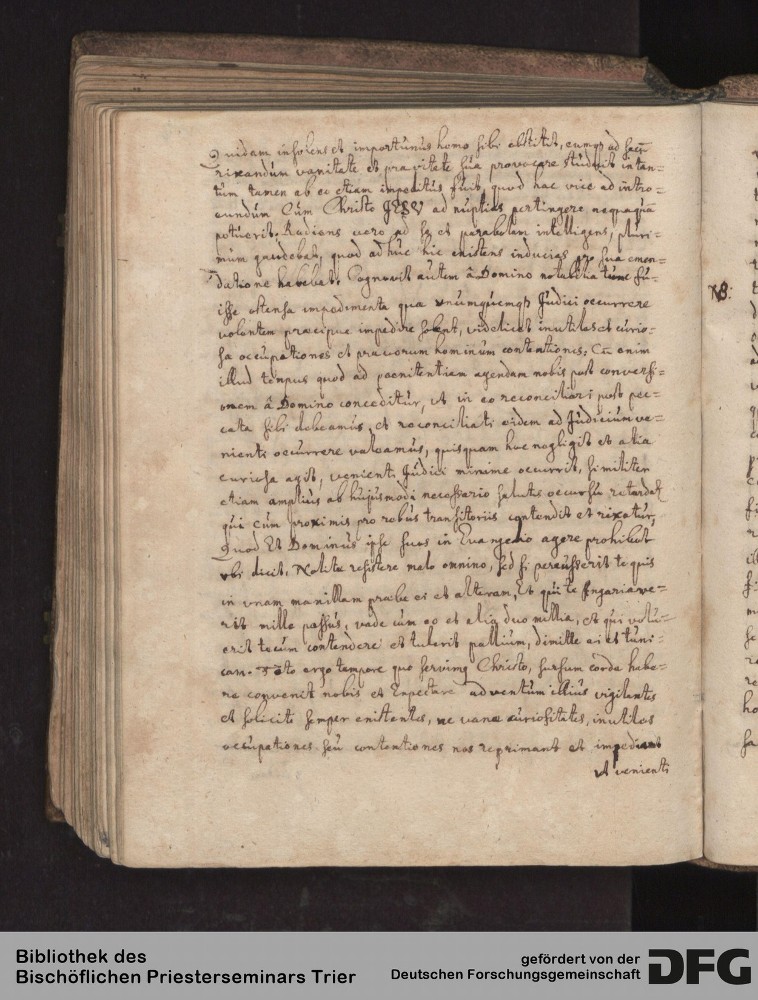 Quidam insolens et importunus homo sibi obstitit, eumq3 ad secū
rixandum vanitate et pravitate sua provocare studuit in tan=
tum tamen ab eo etiam impeditus fuit, quod hac vice ad intro=
eundum Cum Christo JESV ad nuptias pertingere nequaquā
potuerit. Radiens vero ad se et parabolam intelligens, pluri=
mum gaudebat, quod adhuc hic existens inducias pro sua emen=
datione habebat. Cognovit autem â Domino notabilia tunc fu=
isse ostensa impedimenta quæ unumquemq3 Judici occurrere
volentem præcipue impedire solent, videlicet inutiles et curio=
sa occupationes et pravorum hominum contentiones. Cū enim
illud tempus quod ad pœnitentiam agendam nobis post conversi=
onem â Domino conceditur, ut in eo reconciliari post pec=
cata sibi debeamus, et reconciliati eidem ad Judicium ve=
nienti occurrere valeamus, quisquam hoc negligit et alia
curiosa agit, venienti Judici minime occurrit, similiter
etiam amplius ab hujusmodi necessario salutis occursu retardat
qui cum proximis pro rebus transitoriis contendit et rixatur,
Quod Et Dominus ipse suos in Euangelio agere prohibet
vbi dicit, Nolite resistere malo omnino, sed si percusserit te quis
in vnam maxillam præbe ei et alteram, Et qui te Angariave=
rit mille passus, vade cum eo et alia duo millia, et qui volu=
erit tecum contendere et tulerit pallium, dimitte ei et tuni=
cam. Toto ergo tempore quo servimq Christo, sursum corda habe=
re convenit nobis et Expectare adventum illius vigilantes
et soliciti semper existentes, ne vanæ curiositates, inutiles
occupationes seu contentiones nos reprimant et impediant
ut venienti
NB:
Bibliothek des
Bischöflichen Priesterseminars Trier
gefördert von der
Deutschen Forschungsgemeinschaft
DFG